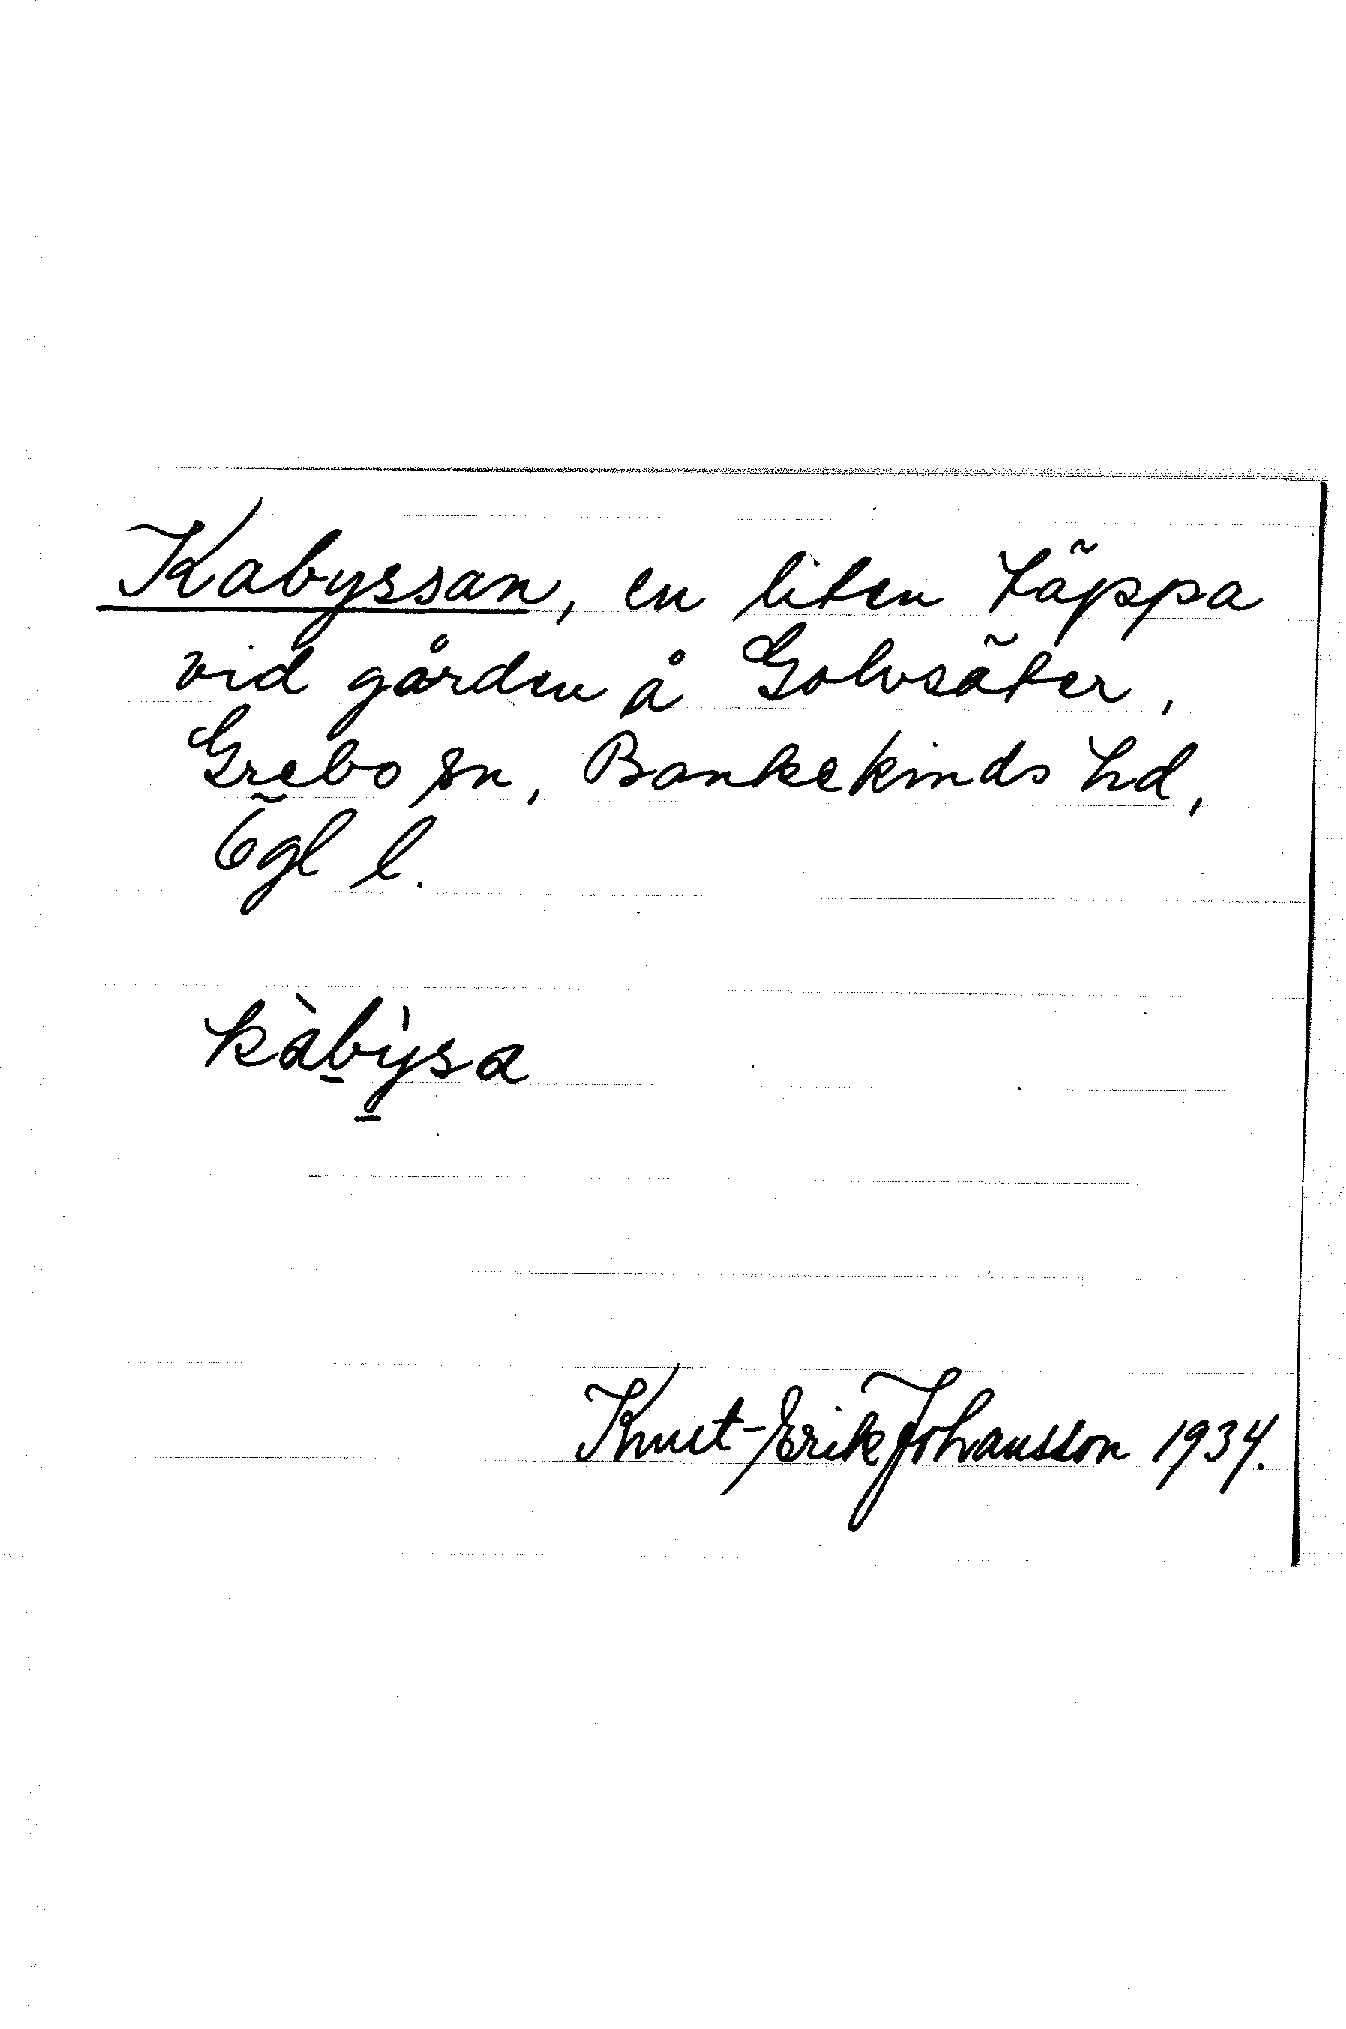 Kabyssan, en liten täppa
vid gården å Golvsäter,
Grebo sn, Bankekinds hd,
Ögl l.
kàbỳsa
Knut-Erik Johansson 1934.